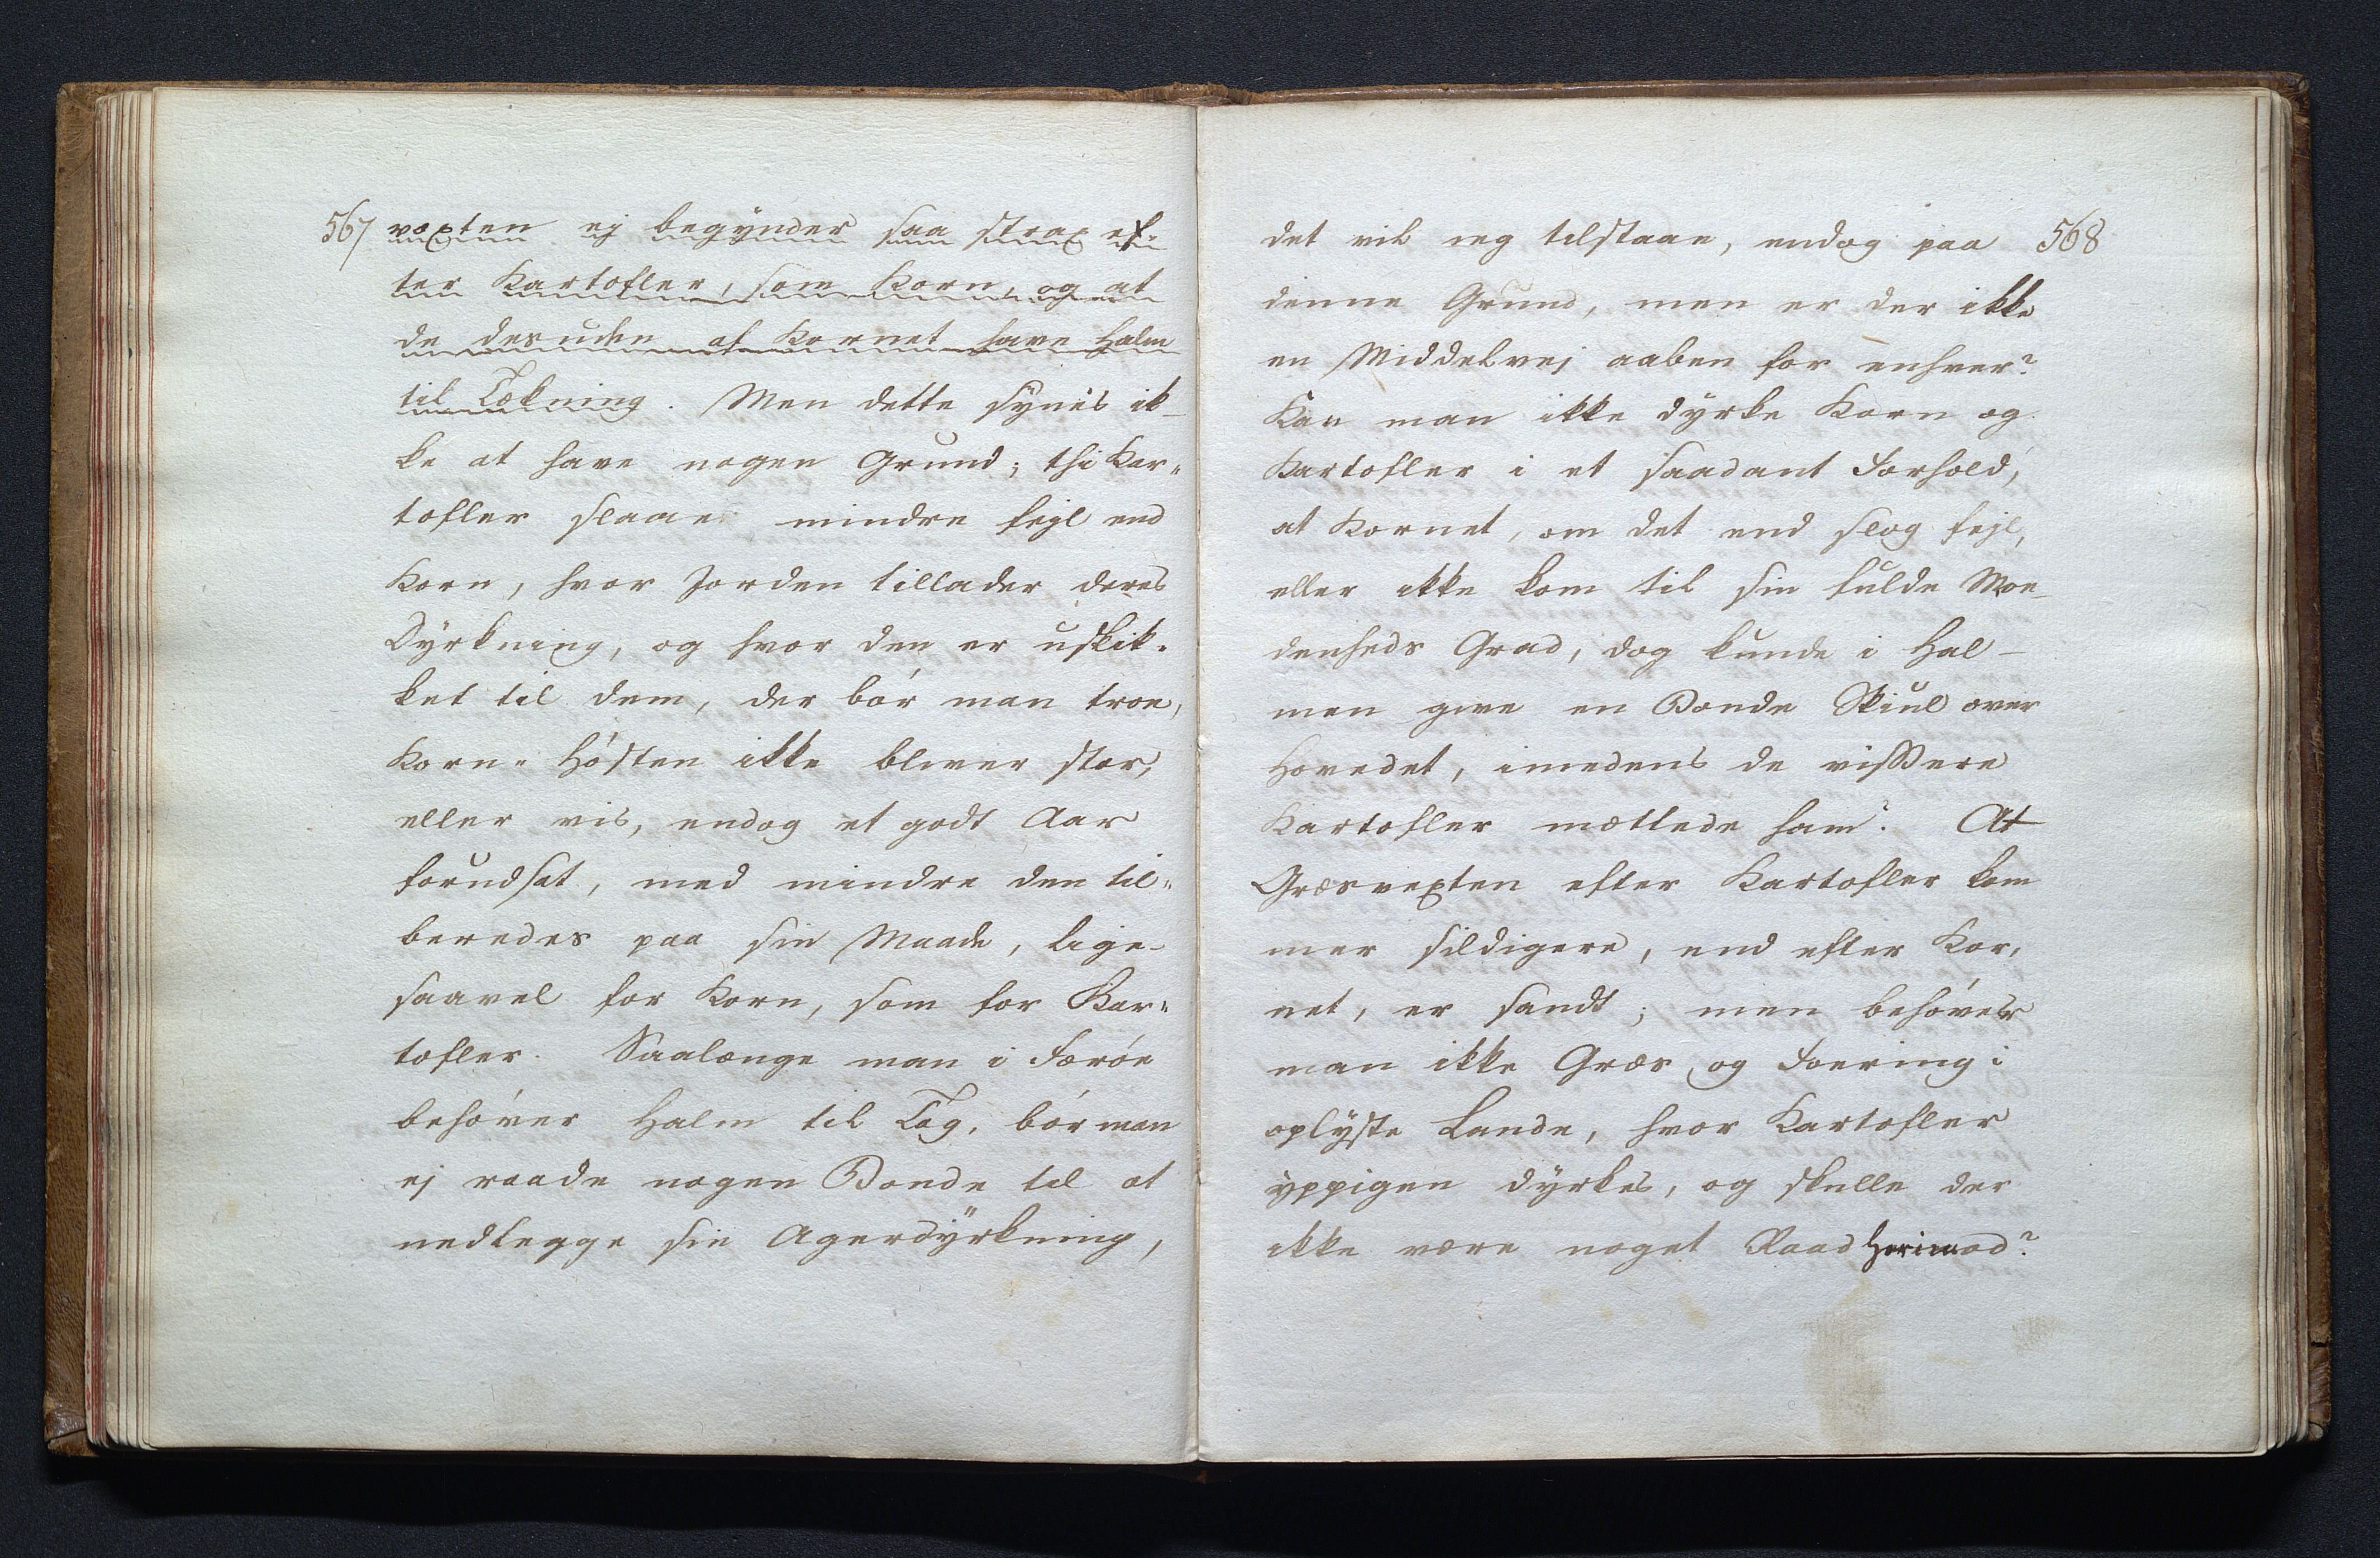 567 væxten ej begynder saa strax ef-
ter Kartofler, som Korn, og at
de desuden af Kornet have Halm
til Tækning. Men dette synes ik-
ke at have nogen Grund; thi Kar-
tofler slaae mindre fejl end
Korn, hvor Jorden tillader deres
Dyrkning, og hvor den er uskik-
ket til dem, der bør man troe,
Korn-Høsten ikke bliver stor,
eller vis, endog et godt Aar
forudsat, med mindre den til-
beredes paa sin Maade, lige-
saavel for Korn, som for Kar-
tofler. Saalænge man i Færøe
behøver Halm til Tag, bør man
ej raade nogen Bonde til at
nedlegge sin Agerdyrkning,
det vil jeg tilstaae, endog paa 568
denne Grund, men er der ikke
en Middelvej aaben for enhver?
Kan man ikke dyrke Korn og
Kartofler i et saadant Forhold,
at Kornet, om det end slog fejl,
eller ikke kom til sin fulde Moe-
denheds Grad, dog kunde i Hal-
men give en Bonde Skiul over
Hovedet, imedens de vissere
Kartofler mættede ham. At
Græsvexten efter Kartofler kom
mer sildigere, end efter Kor-
net, er sandt; men behøver
man ikke Græs og Foering i
oplyste Lande, hvor Kartofler
yppigen dyrkes, og skulle der
ikke være noget Raad herimod?